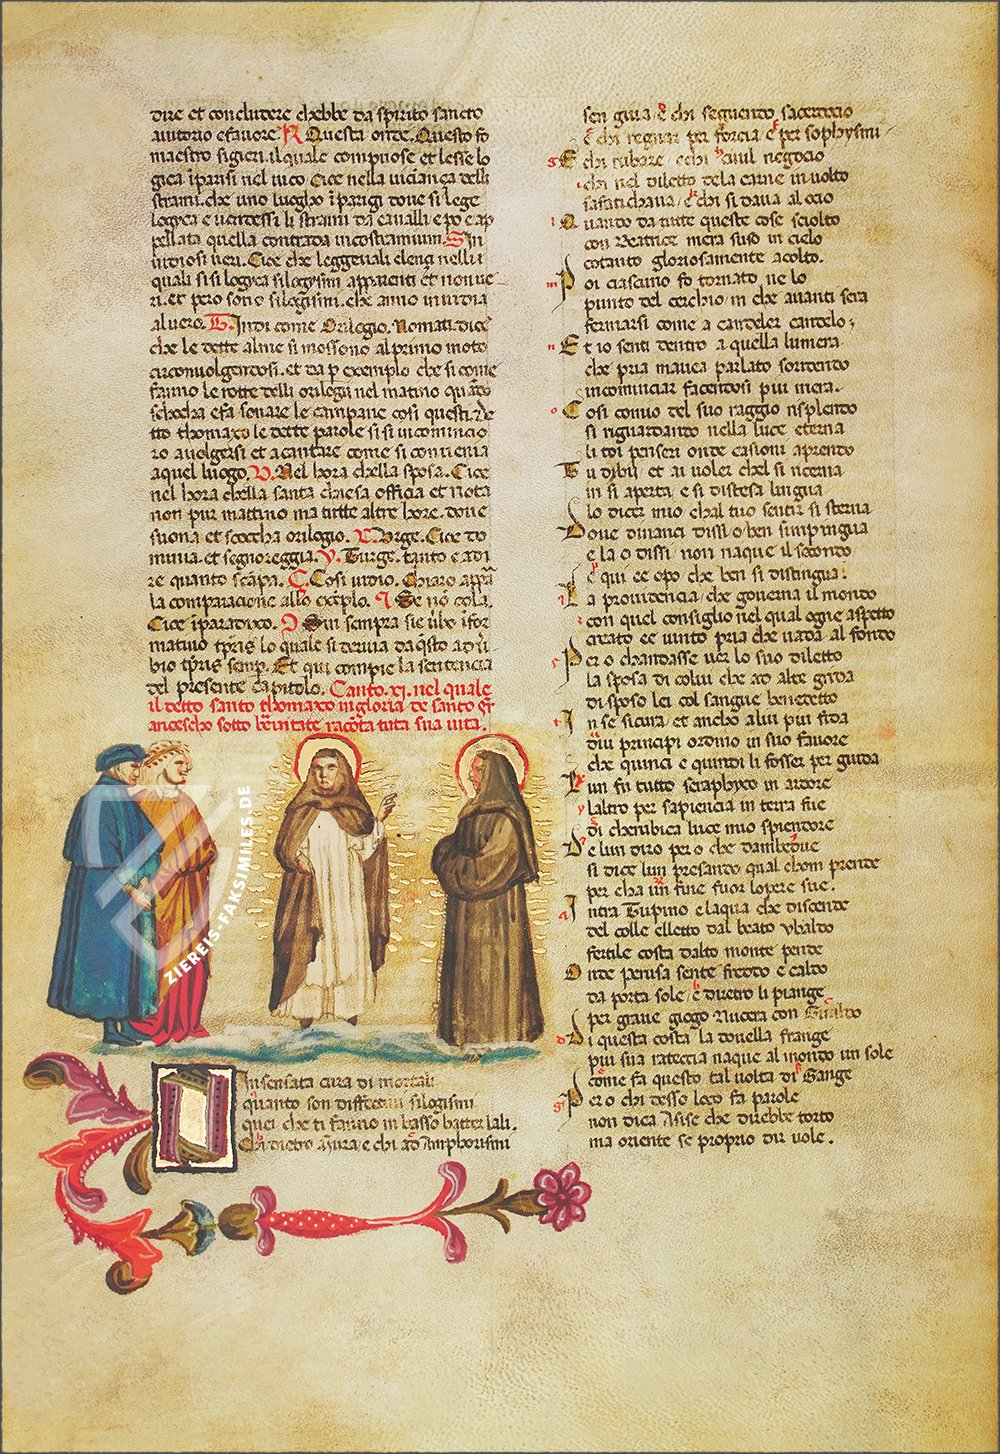 dire et concludere chebbe da spirito sancto
autorio e favore. R Questa onde. Questo fo
maestro sigieri. il quale compuose et lesse lo
gica i parisi nel vico Cice nella vicinança delli
strami. che uno luogho i parigi dove si lege
logyca e vendessi li strami da cavalli e po e ap
pellata quella contrada in costramium. S in
vidiosi veri. Cice che leggevali elenci nelli
quali si si logyca silogysmi apparenti et non ve
ri. et pero sono silogismi. che anno invidia
al vero. T. Indi come Orilogio. Nomati. dice
che le dette alme si mossono al primo moto
circonvolgendosi. et da p exemplo che si come
fanno le rotte delli orilogii nel matino quado
schocha e fa sonare le campane cosi questi. de
tto thomaxo le dette parole si si incomincio
ro a volgersi et a cantare come si convenia
a quel luogo. V. Nel hora chella sposa. Cice
nel hora chella santa chiesa officia et nota
non pur mattino ma tutte altre hore. dove
suona et scoccha orilogio. Urge. Cice do
mina. et segnoreggia. Y. Turge. tanto e a di
re quanto scapa. Cosi vidio. Chiaro appa
la comparacione allo exeplo. Se no cola.
Cice i paradixo. Sui sempra sie vbo ifor
mativo tpris lo quale si deriva da qsto adu
bio tpris semp. Et qui compie la sentencia
del presente Capitolo. Canto. xi. nel quale
il detto santo thomaxo in gloria de santo fr
ancescho sotto brevitate racota tuta sua vita.
ZIEREIS-FAKSIMILES.DE
O Insensata cura di mortali
quanto son diffectivi silogismi
quei che ti fanno in basso batter lali.
Chi dietro a iura / e chi ad Amphorismi
sen giva e chi seguendo sacerdocio
e chi regnar per forcia / e per sophysmi
E chi rubare e chi civil negocio
chi nel diletto dela carne involto
safatichava / e chi si dava al ocio
Quando da tutte queste cose sciolto
con Beatrice mera suso in cielo
cotanto gloriosamente acolto.
Poi ciascuno fo tornato ne lo
punto del cerchio in che avanti sera
fermarsi come a candeler candelo;
Et io senti dentro a quella lumera
che pria mavea parlato sorridendo
incominciar facendosi piu mera.
Cosi comio del suo raggio risplendo
si riguardando nella luce eterna
li toi penseri onde casioni aprendo
Tu dibii et ai voler chel si ricerna
in si aperta e si distesa lingua
lo dicer mio chal tuo sentir si sterna
Dove dinanci dissi o ben simpingua
e la o dissi non naque il secondo
e qui ee opo che ben si distingua.
La providencia che governa il mondo
con quel consiglio nel qual ogne aspetto
creato ee vinto pria che vada al fondo
Pero chandasse ver lo suo diletto
la sposa di colui che ad alte grida
disposo lei col sangue benedetto
In se sicura et ancho a lui piu fida
diu principi ordino in suo favore
che quinci e quindi li fosser per guida
Lun fu tutto seraphyco in ardore
laltro per sapiencia in terra fue
di cherubica luce uno splendore
De lun diro pero che dambedue
si dice lun presando qual chom prende
per cha un fine fuor lopere sue.
Intra Tupino e laqua che discende
del colle elletto dal beato ubaldo
fertile costa dalto monte pende
Onde perusa sente freddo e caldo
da porta sole / e dietro li piange
per grave giogo Nucera con Gualdo
Di questa costa la donella frange
piu sua rateccia naque al mondo un sole
come fa questo tal volta di Gange
Pero chi desso loco fa parole
non dica Asise che direbbe torto
ma oriente se proprio dir vole.